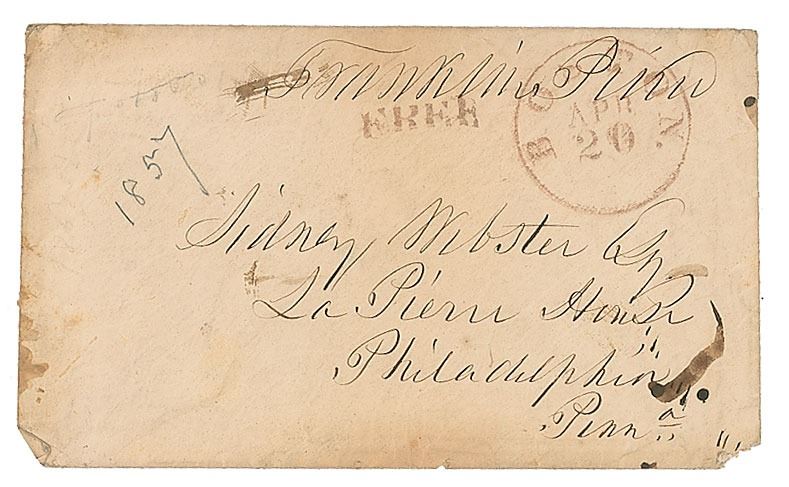 Franklin Pierce
FREE
BOSTON.
APR
20
1857
Sidney Webster Esq
La Pierre House
Philadelphia
Penna